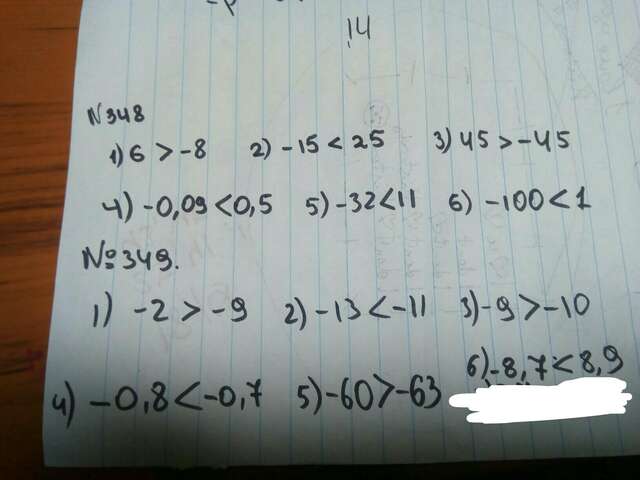 14
N348
1) 6 > -8 2) -15 < 25 3) 45 > -45
4) -0,09 < 0,5 5) -32 < 11 6) -100 < 1
№349.
1) -2 > -9 2) -13 < -11 3) -9 > -10
4) -0,8 < -0,7 5) -60 > -63 6) -8,7 < 8,9